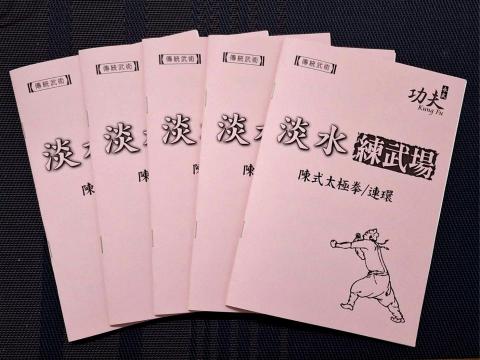 【傳統武術】
淡
陳
【傳統武術】
淡水
陳
【傳統武術】
淡
陳
【傳統武術】
淡水
陳
【傳統武術】
功夫
Kung Fu
淡水練武場
陳式太極拳/連環